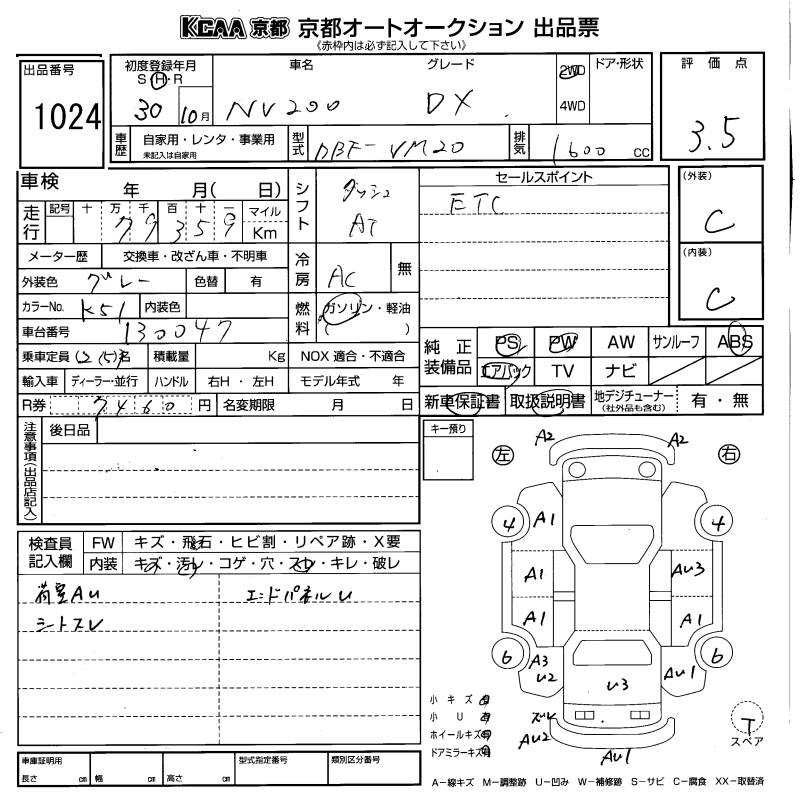 KCAA 京都 京都オートオークション 出品票
《赤枠内は必ず記入して下さい》
出品番号
1024
初度登録年月
S・H・R
30
10月
車名
NV200
グレード
DX
2WD
4WD
ドア・形状
評価点
3.5
車歴
自家用・レンタ・事業用
未記入は自家用
型式
DBF-VM20
排気
1600 cc
車検 年 月( 日)
走行
記号 十 万 千 百 十 一 マイル
79359 Km
メーター歴 交換車・改ざん車・不明車
外装色 グレー 色替 有
カラーNo. K51 内装色
車台番号 130047
乗車定員 (2)(5)名 積載量 Kg
輸入車 ディーラー・並行 ハンドル 右H・左H
R券 7460 円
名変期限 月 日
シフト
ダッシュ
AT
冷房 AC 無
燃料
ガソリン・軽油
( )
NOX 適合・不適合
モデル年式 年
セールスポイント
ETC
(外装)
C
(内装)
C
純正装備品
PS PW AW サンルーフ ABS
エアバック TV ナビ
新車保証書 取扱説明書 地デジチューナー 有・無
(社外品も含む)
注意事項(出品店記入)
後日品
キー預り
検査員記入欄
FW キズ・飛石・ヒビ割・リペア跡・X要
内装 キズ・汚レ・コゲ・穴・スレ・キレ・破レ
荷室AU
シートスレ
エンドパネルU
左
右
A2
A2
4
A1
4
A1
AU3
A1
A1
6
A3
U2
AU1
6
U3
ズレ
AU2
AU1
T
スペア
小キズ 有
小U 有
ホイールキズ 有
ドアミラーキズ 有
車庫証明用
長さ cm 幅 cm 高さ cm
型式指定番号
類別区分番号
A−線キズ M−調整跡 U−凹み W−補修跡 S−サビ C−腐食 XX−取替済